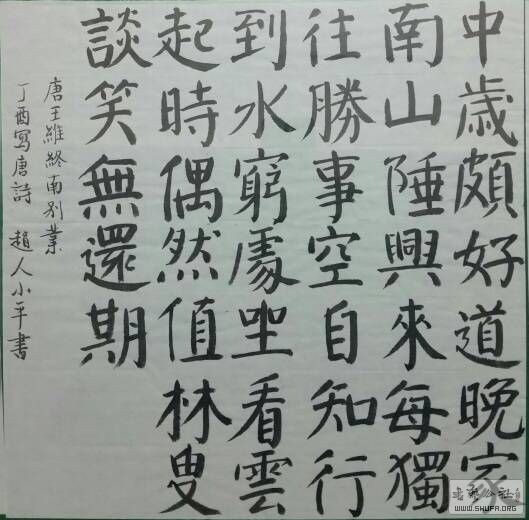 中歲頗好道晚家
南山陲興來每獨
往勝事空自知行
到水窮處坐看雲
起時偶然值林叟
談笑無還期
唐王維終南别業
丁酉寫唐詩 趙人小平書
WWW.SHUFA.ORG